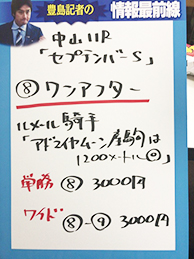 豊島記者の
情報最前線
中山11R
「セプテンバーS」
⑧ワンアフター
ルメール騎手
「アドマイヤムーン産駒は
1200メートル◎」
単勝 ⑧ 3000円
ワイド ⑧-⑨ 3000円